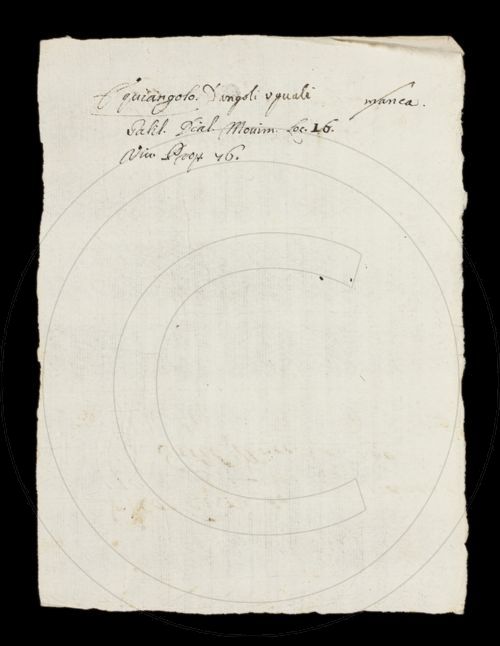 Equiangolo. D'angoli uguali manca.
Galil. Dial. Mouim. Loc. 16.
Viu. Prop. 76.